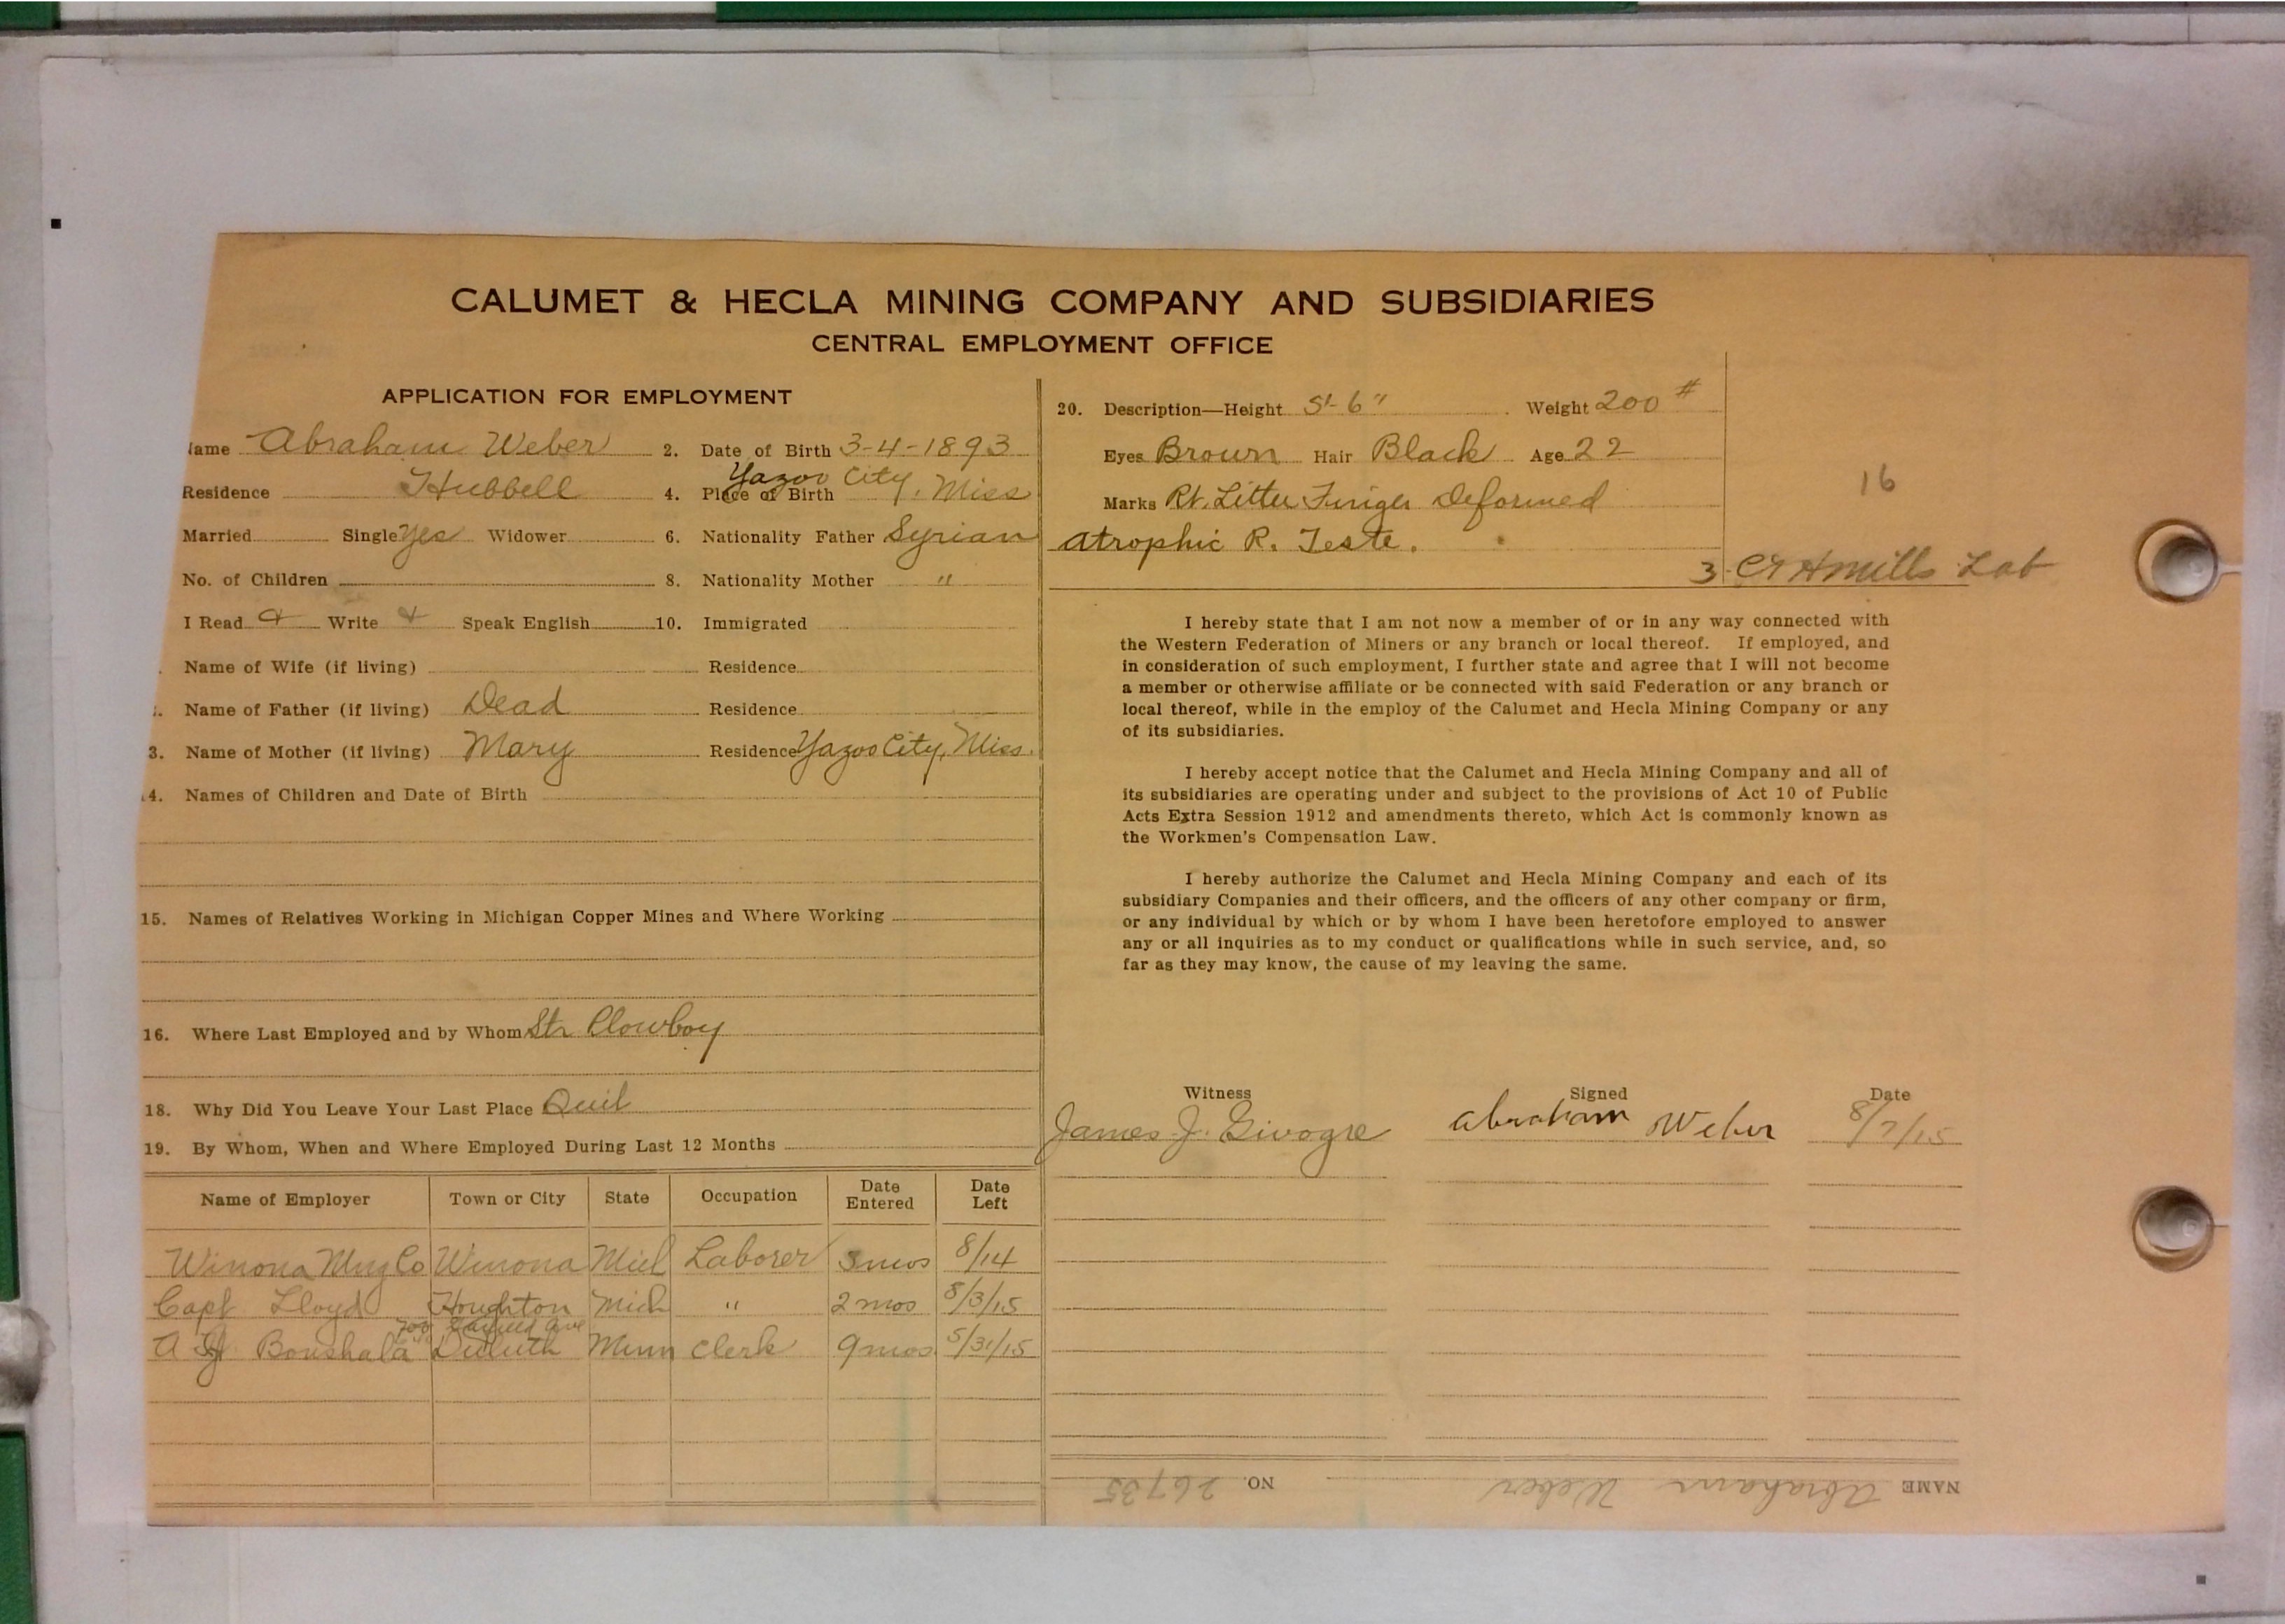 CALUMET & HECLA MINING COMPANY AND SUBSIDIARIES
CENTRAL EMPLOYMENT OFFICE
APPLICATION FOR EMPLOYMENT
ame Abraham Weber 2. Date of Birth 3-4-1893
Residence Hubbell 4. Place of Birth Yazoo City, Miss
Married Single Yes Widower 6. Nationality Father Syrian
No. of Children 8. Nationality Mother "
I Read Write Speak English 10. Immigrated
Name of Wife (if living) Residence
Name of Father (if living) Dead Residence
3. Name of Mother (if living) Mary Residence Yazoo City, Miss.
4. Names of Children and Date of Birth
15. Names of Relatives Working in Michigan Copper Mines and Where Working
16. Where Last Employed and by Whom Str Plowboy
18. Why Did You Leave Your Last Place Quit
19. By Whom, When and Where Employed During Last 12 Months
Name of Employer Town or City State Occupation Date Entered Date Left
Winona Mng Co Winona Mich Laborer 3 mos 8/14
Capt Lloyd Houghton Mich " 2 mos 8/3/15
700 Ave
A Boushala Duluth Minn Clerk 9 mos 5/31/15
20. Description—Height 5'-6" Weight 200 #
Eyes Brown Hair Black Age 22
Marks Rt. Little Finger Deformed
Atrophic R. Teste.
16
3 C & H Mills Lab
I hereby state that I am not now a member of or in any way connected with
the Western Federation of Miners or any branch or local thereof. If employed, and
in consideration of such employment, I further state and agree that I will not become
a member or otherwise affiliate or be connected with said Federation or any branch or
local thereof, while in the employ of the Calumet and Hecla Mining Company or any
of its subsidiaries.
I hereby accept notice that the Calumet and Hecla Mining Company and all of
its subsidiaries are operating under and subject to the provisions of Act 10 of Public
Acts Extra Session 1912 and amendments thereto, which Act is commonly known as
the Workmen's Compensation Law.
I hereby authorize the Calumet and Hecla Mining Company and each of its
subsidiary Companies and their officers, and the officers of any other company or firm,
or any individual by which or by whom I have been heretofore employed to answer
any or all inquiries as to my conduct or qualifications while in such service, and, so
far as they may know, the cause of my leaving the same.
Witness Signed Date
James J. Abraham Weber 8/7/15
NAME Abraham Weber NO. 26735